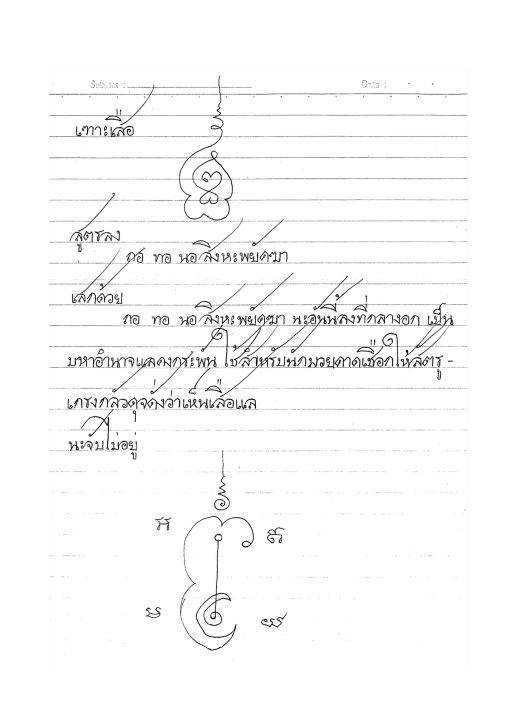 Subject : Date :
เฑาะเสือ
สูตรลง
ถอ ทอ นอ สิงหะพยัคฆา
เสกด้วย
ถอ ทอ นอ สิงหะพยัคฆา นะอันนี้ลงที่กลางอก เป็น
มหาอำนาจแลคงกระพัน ใช้สำหรับนักมวยคาดเชือกให้สัตรู -
เกรงกลัวดุจดั่งว่าเห็นเสือแล
นะจับไม่อยู่